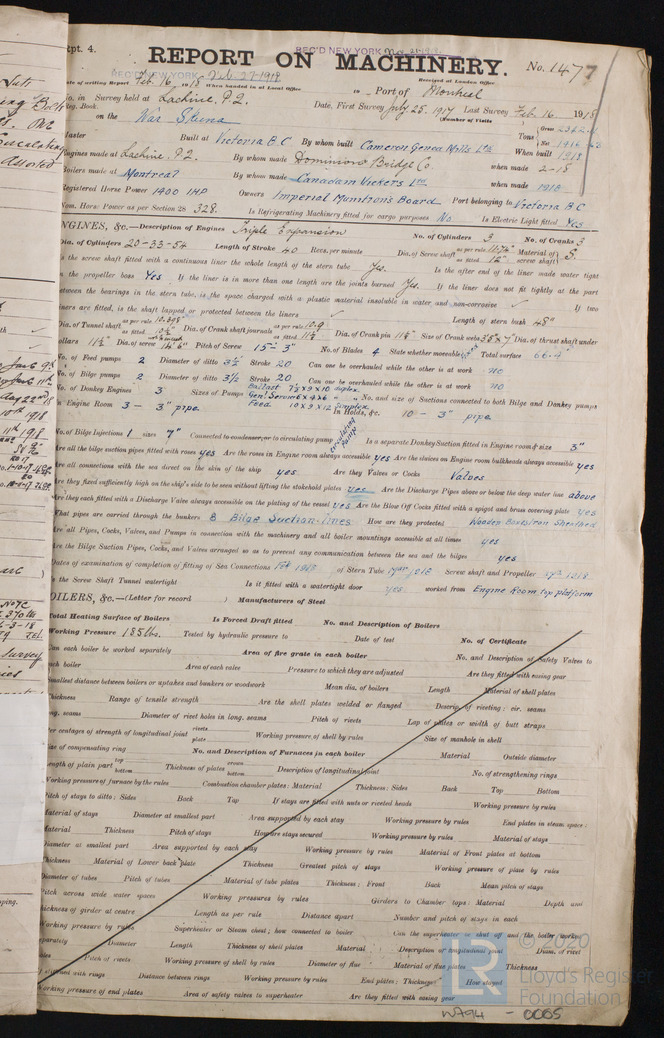 Rpt. 4.
REC'D NEW YORK Nov. 21-1918
REPORT ON MACHINERY.
No. 1477
REC'D NEW YORK Feb 27-1918
Date of writing Report Feb. 16 1918 When handed in at Local Office
Received at London Office
Port of Montreal
No. in Survey held at Lachine, P.Q. Date, First Survey July 25, 1917 Last Survey Feb. 16 1918
Reg. Book.
(Number of Visits
on the War Skeena
Tons Gross
Net
Master Built at Victoria B.C By whom built Cameron Genoa Mills Ltd When built 1918
Engines made at Lachine, P.Q. By whom made Dominion Bridge Co. when made 2-18
Boilers made at Montreal By whom made Canadian Vickers Ltd when made 1918
Registered Horse Power 1400 IHP Owners Imperial Munitions Board Port belonging to Victoria B C
Nom. Horse Power as per Section 28 328. Is Refrigerating Machinery fitted for cargo purposes No Is Electric Light fitted Yes
ENGINES, &c.—Description of Engines Triple Expansion No. of Cylinders 3 No. of Cranks 3
Dia. of Cylinders 20-33-54 Length of Stroke 40 Revs. per minute Dia. of Screw shaft as per rule as fitted 12" Material of screw shaft S.
Is the screw shaft fitted with a continuous liner the whole length of the stern tube Yes. Is the after end of the liner made water tight
in the propeller boss Yes If the liner is in more than one length are the joints burned Yes. If the liner does not fit tightly at the part
between the bearings in the stern tube, is the space charged with a plastic material insoluble in water and non-corrosive ✓ If two
liners are fitted, is the shaft lapped or protected between the liners ✓ Length of stern bush 48"
Dia. of Tunnel shaft as per rule as fitted Dia. of Crank shaft journals as per rule 10.9 as fitted 11½ Dia. of Crank pin 11½ Size of Crank webs Dia. of thrust shaft under
collars 11½ Dia. of screw 14'6" Pitch of Screw 15-3" No. of Blades 4 State whether moveable Total surface 66.4
No. of Feed pumps 2 Diameter of ditto 3½ Stroke 20 Can one be overhauled while the other is at work no
No. of Bilge pumps 2 Diameter of ditto 3½ Stroke 20 Can one be overhauled while the other is at work no
No. of Donkey Engines 3 Sizes of Pumps Ballast 7½x9x10 duplex Genl Service 6x4x6 Feed 10x9x12 simplex No. and size of Suctions connected to both Bilge and Donkey pumps
In Engine Room 3 - 3" pipe In Holds, &c. 10 - 3" pipe
No. of Bilge Injections 1 sizes 7" Connected to condenser, or to circulating pump circulating pump Is a separate Donkey Suction fitted in Engine room & size 3"
Are all the bilge suction pipes fitted with roses yes Are the roses in Engine room always accessible yes Are the sluices on Engine room bulkheads always accessible yes
Are all connections with the sea direct on the skin of the ship yes Are they Valves or Cocks Valves
Are they fixed sufficiently high on the ship's side to be seen without lifting the stokehold plates yes Are the Discharge Pipes above or below the deep water line above
Are they each fitted with a Discharge Valve always accessible on the plating of the vessel yes Are the Blow Off Cocks fitted with a spigot and brass covering plate yes
What pipes are carried through the bunkers 8 Bilge Suction-lines How are they protected Wooden Boxes Iron Sheathed
Are all Pipes, Cocks, Valves, and Pumps in connection with the machinery and all boiler mountings accessible at all times yes
Are the Bilge Suction Pipes, Cocks, and Valves arranged so as to prevent any communication between the sea and the bilges yes
Dates of examination of completion of fitting of Sea Connections of Stern Tube Screw shaft and Propeller
Is the Screw Shaft Tunnel watertight Is it fitted with a watertight door yes worked from Engine Room top platform
BOILERS, &c.—(Letter for record ) Manufacturers of Steel
Total Heating Surface of Boilers Is Forced Draft fitted No. and Description of Boilers
Working Pressure 185 lbs. Tested by hydraulic pressure to Date of test No. of Certificate
Can each boiler be worked separately Area of fire grate in each boiler No. and Description of Safety Valves to
each boiler Area of each valve Pressure to which they are adjusted Are they fitted with easing gear
Smallest distance between boilers or uptakes and bunkers or woodwork Mean dia. of boilers Length Material of shell plates
Thickness Range of tensile strength Are the shell plates welded or flanged Descrip. of riveting: cir. seams
long. seams Diameter of rivet holes in long. seams Pitch of rivets Lap of plates or width of butt straps
Per centages of strength of longitudinal joint rivets plate Working pressure of shell by rules Size of manhole in shell
Size of compensating ring No. and Description of Furnaces in each boiler Material Outside diameter
Length of plain part top bottom Thickness of plates crown bottom Description of longitudinal joint No. of strengthening rings
Working pressure of furnace by the rules Combustion chamber plates: Material Thickness: Sides Back Top Bottom
Pitch of stays to ditto: Sides Back Top If stays are fitted with nuts or riveted heads Working pressure by rules
Material of stays Diameter at smallest part Area supported by each stay Working pressure by rules End plates in steam space:
Material Thickness Pitch of stays How are stays secured Working pressure by rules Material of stays
Diameter at smallest part Area supported by each stay Working pressure by rules Material of Front plates at bottom
Thickness Material of Lower back plate Thickness Greatest pitch of stays Working pressure of plate by rules
Diameter of tubes Pitch of tubes Material of tube plates Thickness: Front Back Mean pitch of stays
Pitch across wide water spaces Working pressures by rules Girders to Chamber tops: Material Depth and
thickness of girder at centre Length as per rule Distance apart Number and pitch of stays in each
Working pressure by rules Superheater or Steam chest; how connected to boiler Can the superheater be shut off and the boiler worked
separately Diameter Length Thickness of shell plates Material Description of longitudinal joint Diam. of rivet
holes Pitch of rivets Working pressure of shell by rules Diameter of flue Material of flue plates Thickness
If stiffened with rings Distance between rings Working pressure by rules End plates: Thickness How stayed
Working pressure of end plates Area of safety valves to superheater Are they fitted with easing gear
© 2020
Lloyd's Register
Foundation
W794 - 0065